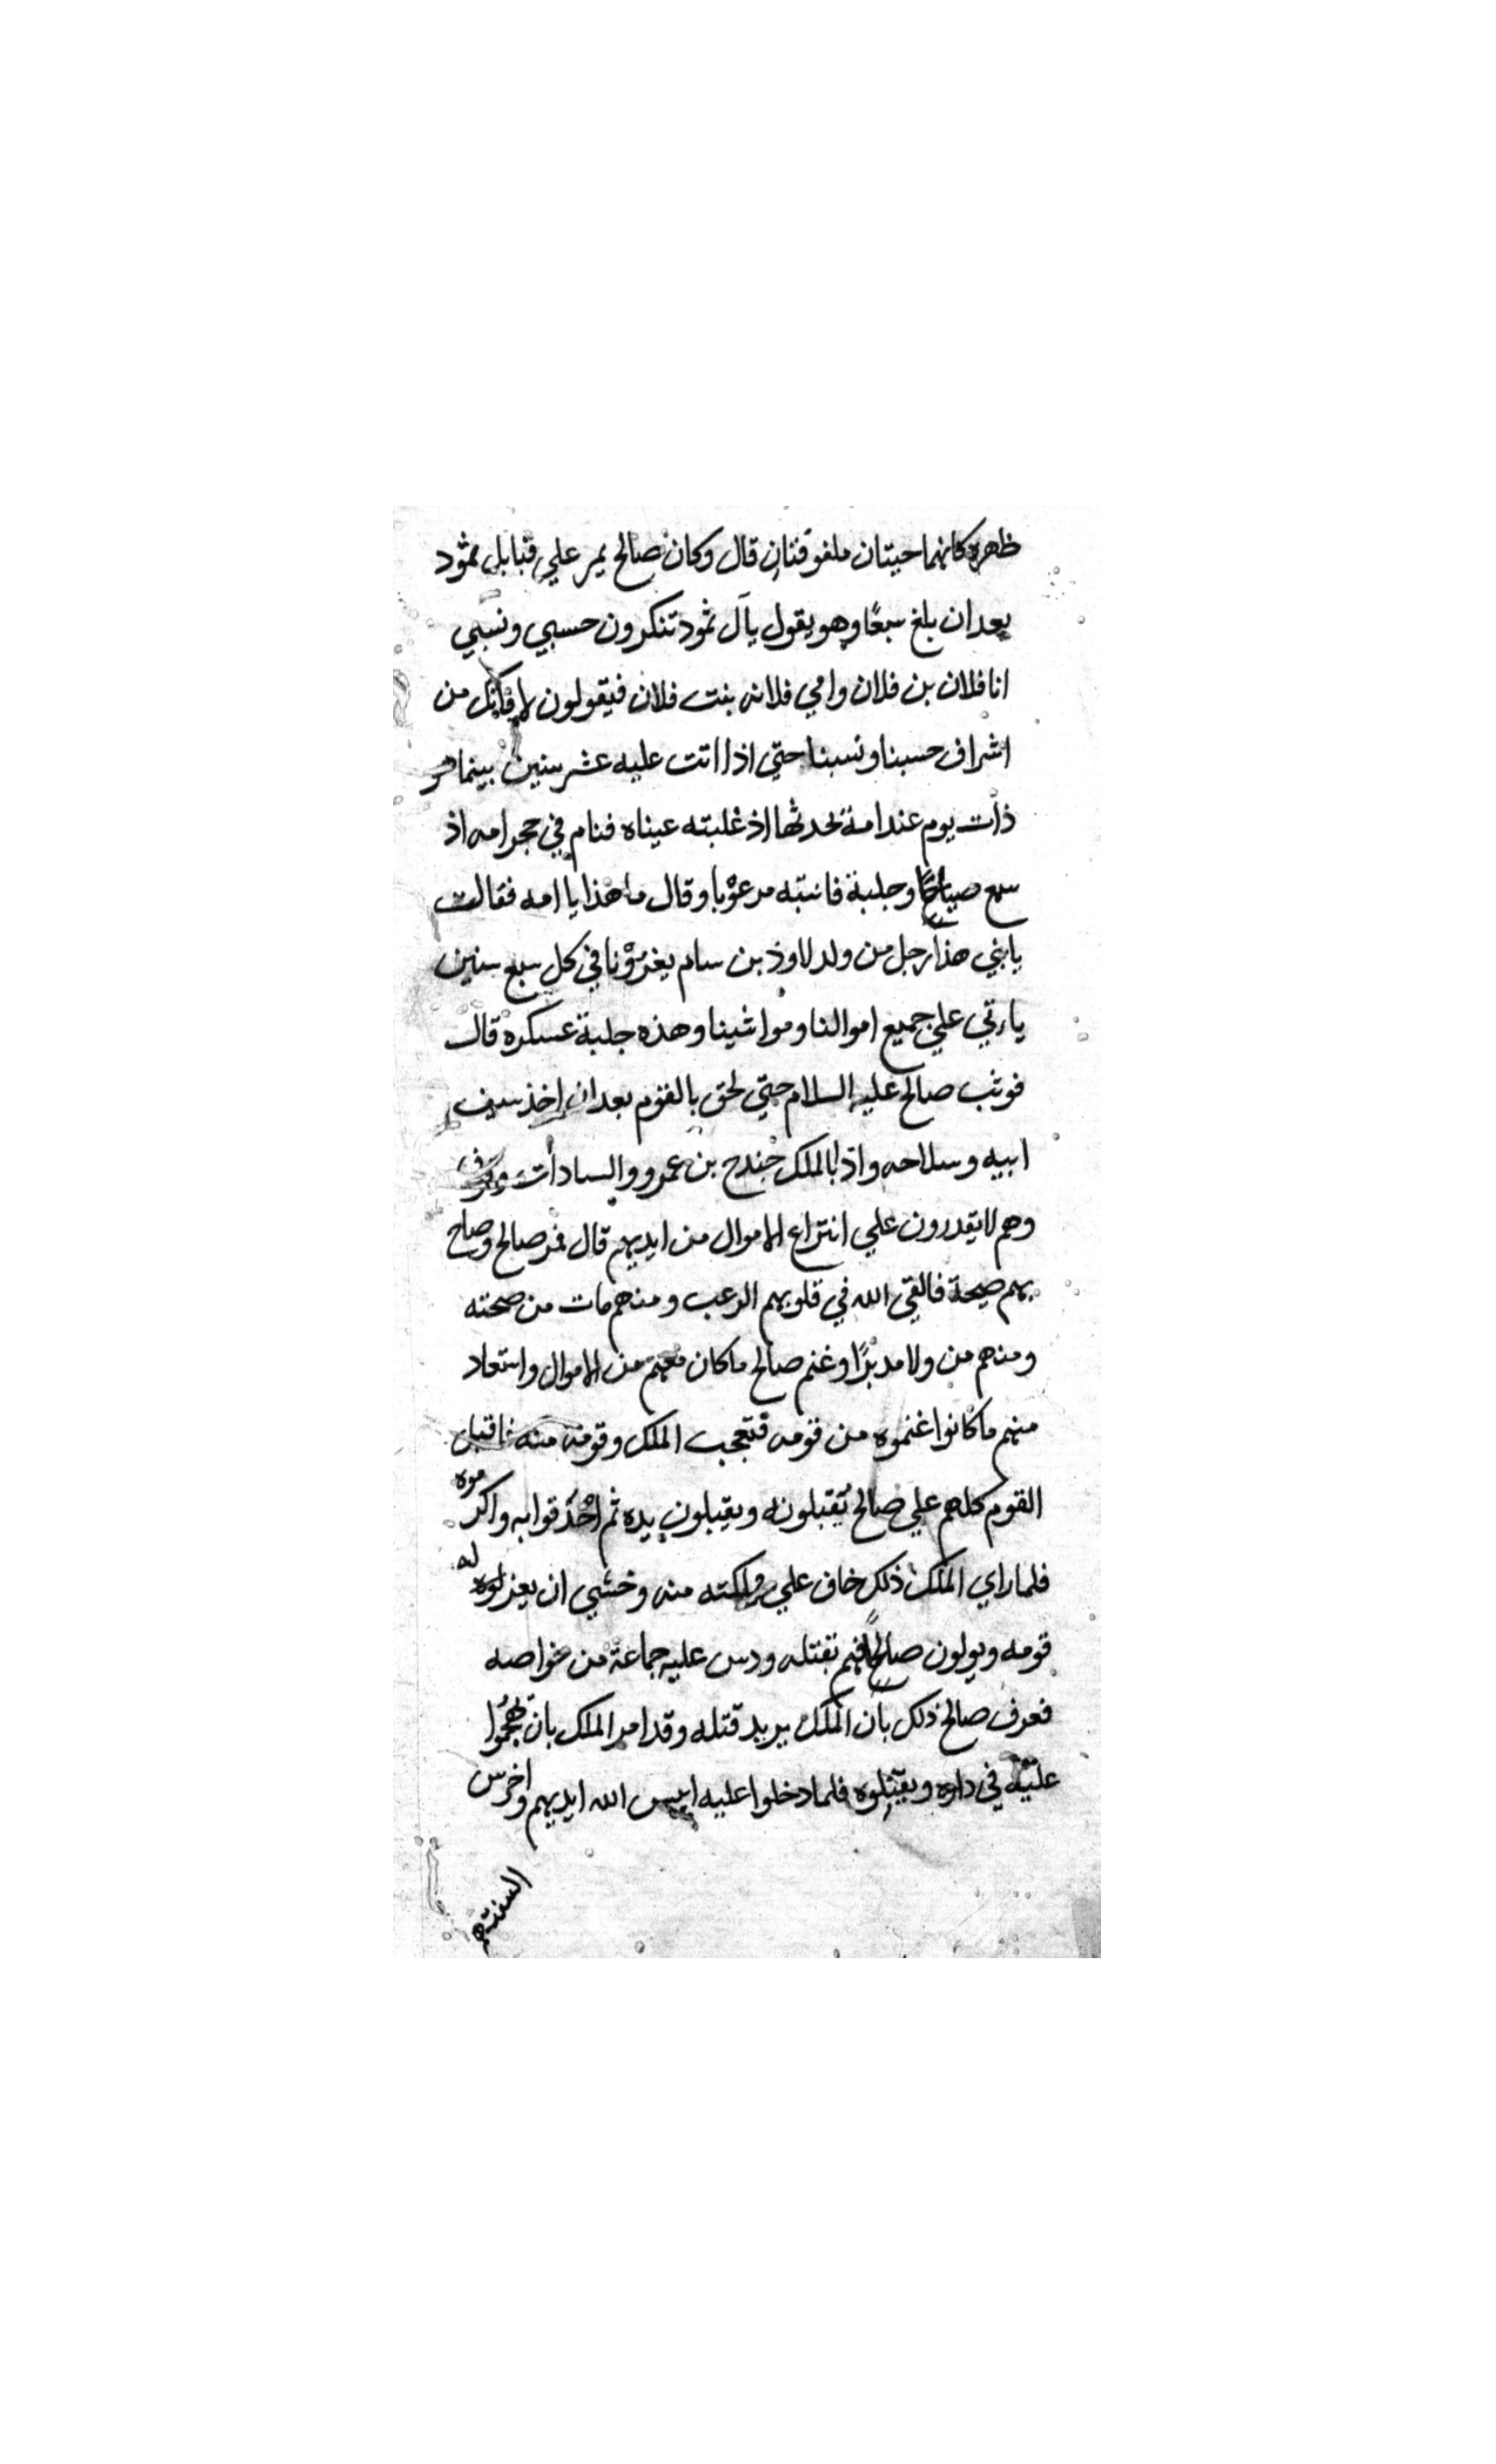 ظهره كانهما حيتان ملفوفتان قال وكان صالح يمر علي قبايل ثمود
بعد ان بلغ سبعًا وهو يقول يآل ثمود تنكرون حسبي ونسبي
انا فلان بن فلان وامي فلانه بنت فلان فيقولون لا فانك من
اشراف حسبنا ونسبنا حتي اذا اتت عليه عشر سنين بينما هو
ذات يوم عند امه يحدثها اذ غلبته عيناه فنام في حجر امه اذ
سمع صياحًا وجلبة فانتبه مرعوبا وقال ما هذا يا امه فقالت
يا بني هذا رجل من ولد لاوذ بن سام يغزونا في كل سبع سنين
ياءتي علي جميع اموالنا ومواشينا وهذه جلبة عسكره قال
فوثب صالح عليه السلام حتي لحق بالقوم بعد ان اخذ سيف
ابيه وسلاحه واذا بالملك جندح بن عمرو والسادات
وهم لا يقدرون علي انتزاع الاموال من ايديهم قال فمر صالح وصاح
بهم صيحة فالقي الله في قلوبهم الرعب ومنهم مات من صحته
ومنهم من ولا مدبرًا وغنم صالح ما كان معهم من الاموال واستعاد
منهم ما كانوا غنموه من قومه فتعجب الملك وقومه منه فاقبل
القوم كلهم علي صالح يقبلونه ويقبلون يده ثم احدقوا به واكرموه
فلما راي الملك ذلك خاف علي مملكته منه وخشي ان يعزلوه
قومه ويولون صالحًا فهم بقتله ودس عليه جماعة من خواصه
فعرف صالح ذلك بان الملك يريد قتله وقد امر الملك بان يهجموا
عليه في داره ويقتلوه فلما دخلوا عليه ايبس الله ايديهم واخرس
السنتهم